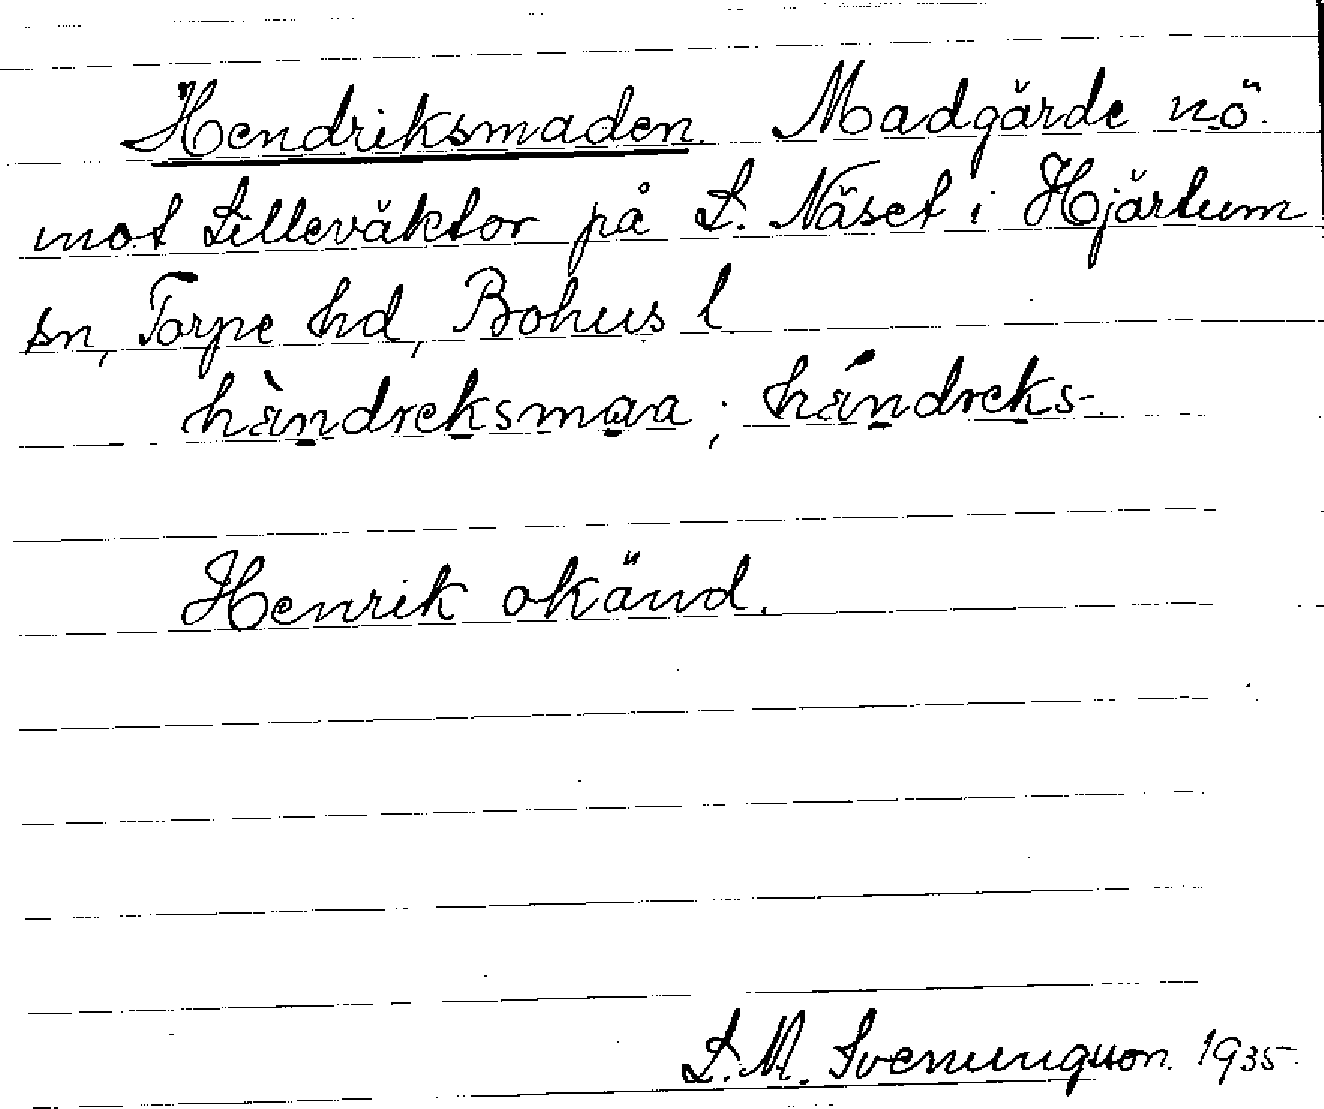 Hendriksmaden. Madgärde nö.
mot Lilleväktor på L. Näset i Hjärtum
sn, Torpe hd, Bohus l.
hàndreksmaa; hándreks-.
Henrik okänd.
L. M. Svenungsson. 1935.